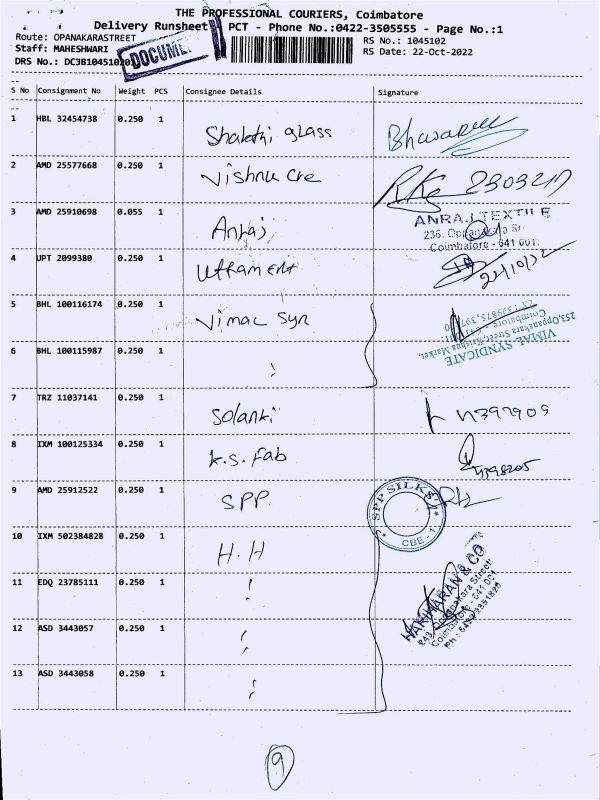 THE PROFESSIONAL COURIERS, Coimbatore
Delivery Runsheet - PCT - Phone No.:0422-3505555 - Page No.:1
Route: OPANAKARASTREET
RS No.: 1045102
Staff: MAHESHWARI
RS Date: 22-Oct-2022
DRS No.: DC3B1045102
DOCUME
S No Consignment No Weight PCS Consignee Details Signature
1 HBL 32454738 0.250 1 glass
2 AMD 25577668 0.250 1 Vishnu Cre
3 AMD 25910698 0.055 1 Anraj
ANRAJ TEXTILE
236, Oppanakara St
Coimbatore - 641 001
4 UPT 2099380 0.250 1 Uttam Ent
22/10/22
5 BHL 100116174 0.250 1 Vimal Syn
VIMAL SYNDICATE
253, Oppanakara Street, Krishna Market,
Coimbatore
6 BHL 100115987 0.250 1
7 TRZ 11037141 0.250 1 Solanki
8 IXM 100125334 0.250 1 K.S. Fab
9 AMD 25912522 0.250 1 SPP
SPP SILKS
CBE - 1
10 IXM 502384828 0.250 1 H.H
HARIHARAN & CO
Oppanakara Street
Coimbatore - 641 001
11 EDQ 23785111 0.250 1
12 ASD 3443057 0.250 1
13 ASD 3443058 0.250 1
9